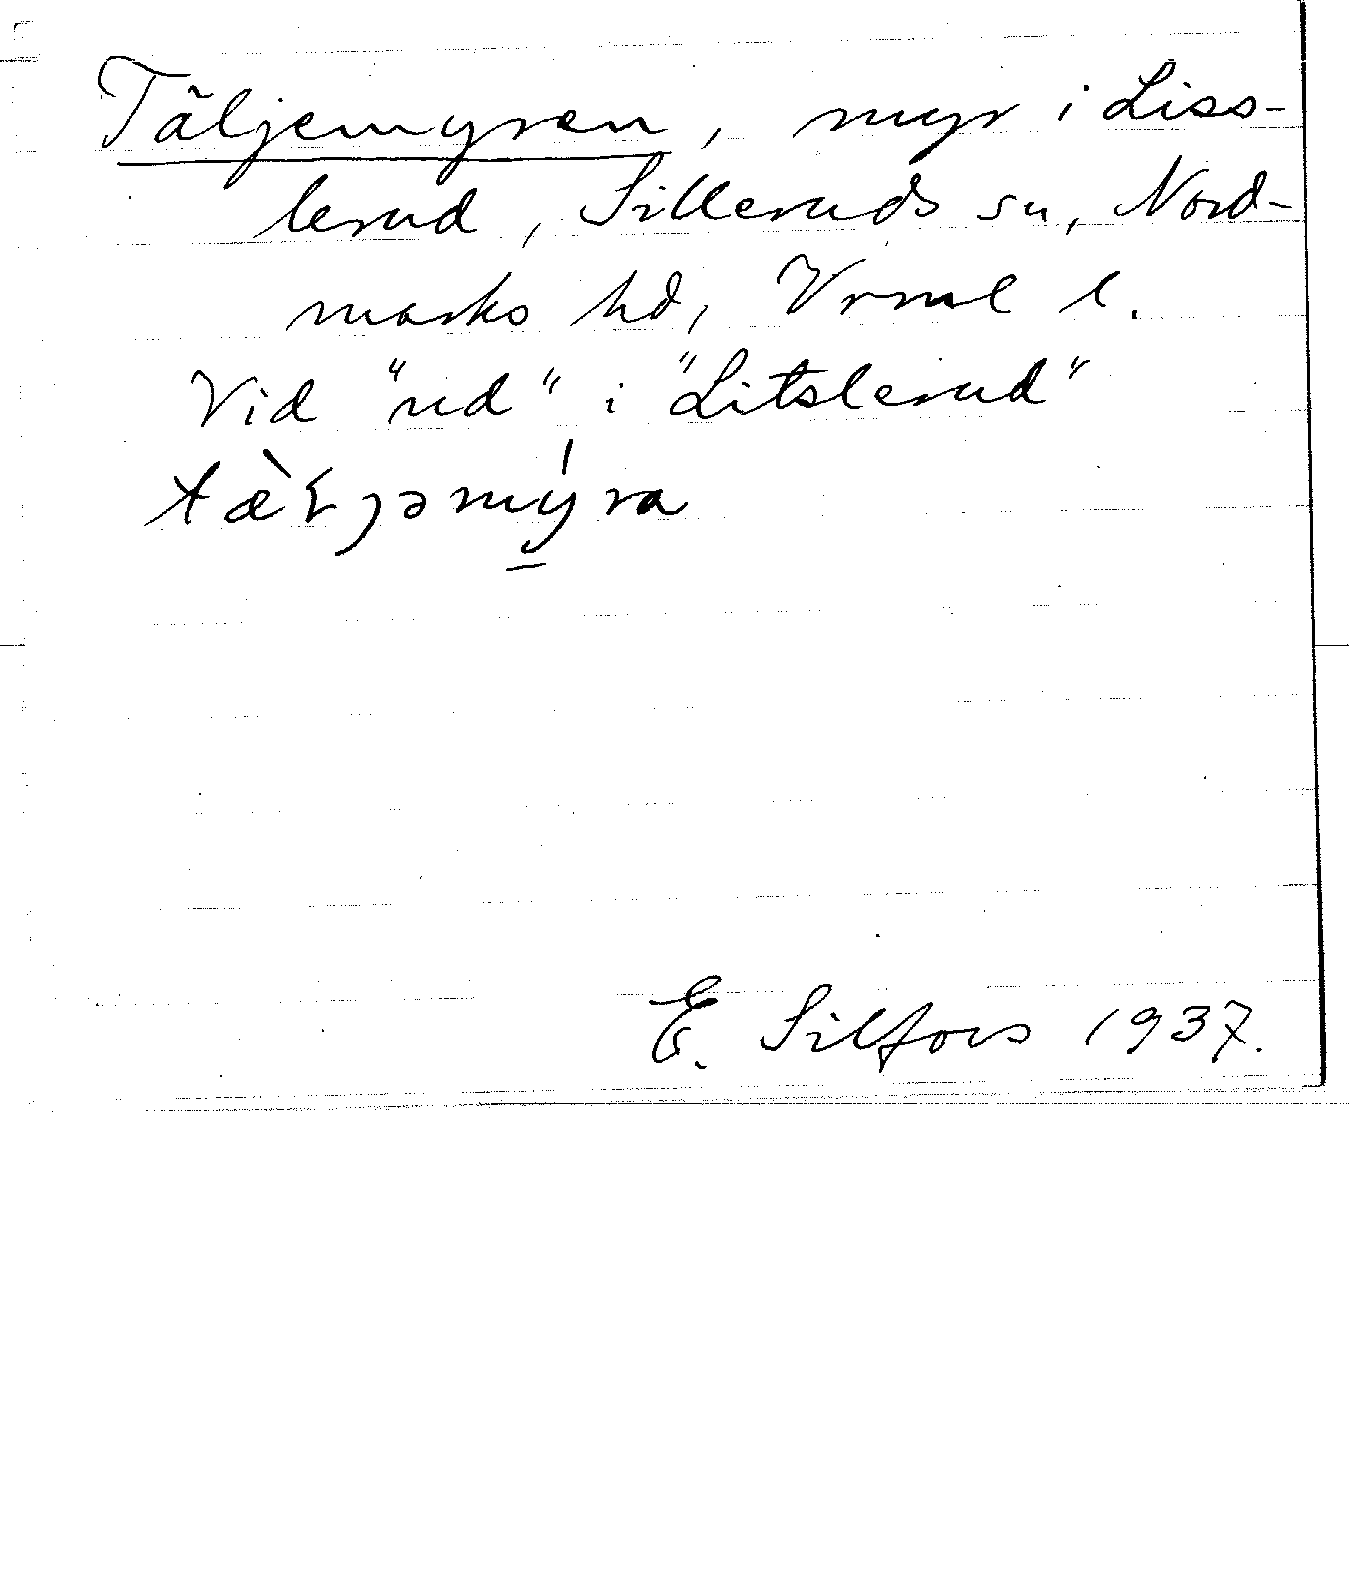 Täljemyren, myr i Liss-
lerud, Silleruds sn, Nord-
marks hd, Vrml l.
Vid "ud" i "Litslerud"
tæ̀ƚjəmý̱ra
E. Silfors 1937.